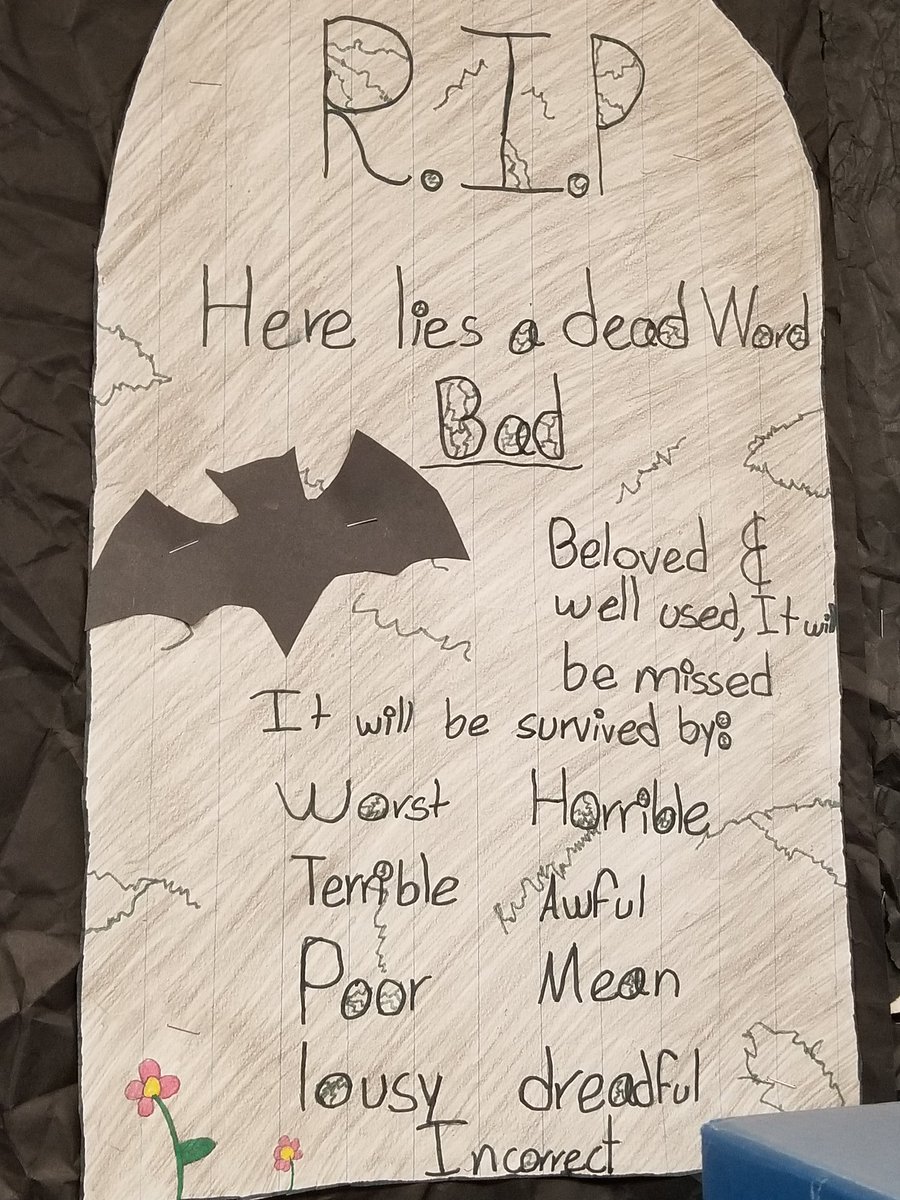 R.I.P
Here lies a dead Word
Bad
Beloved &
well used, It will
be missed
It will be survived by:
Worst Horrible
Terrible Awful
Poor Mean
lousy dreadful
Incorrect